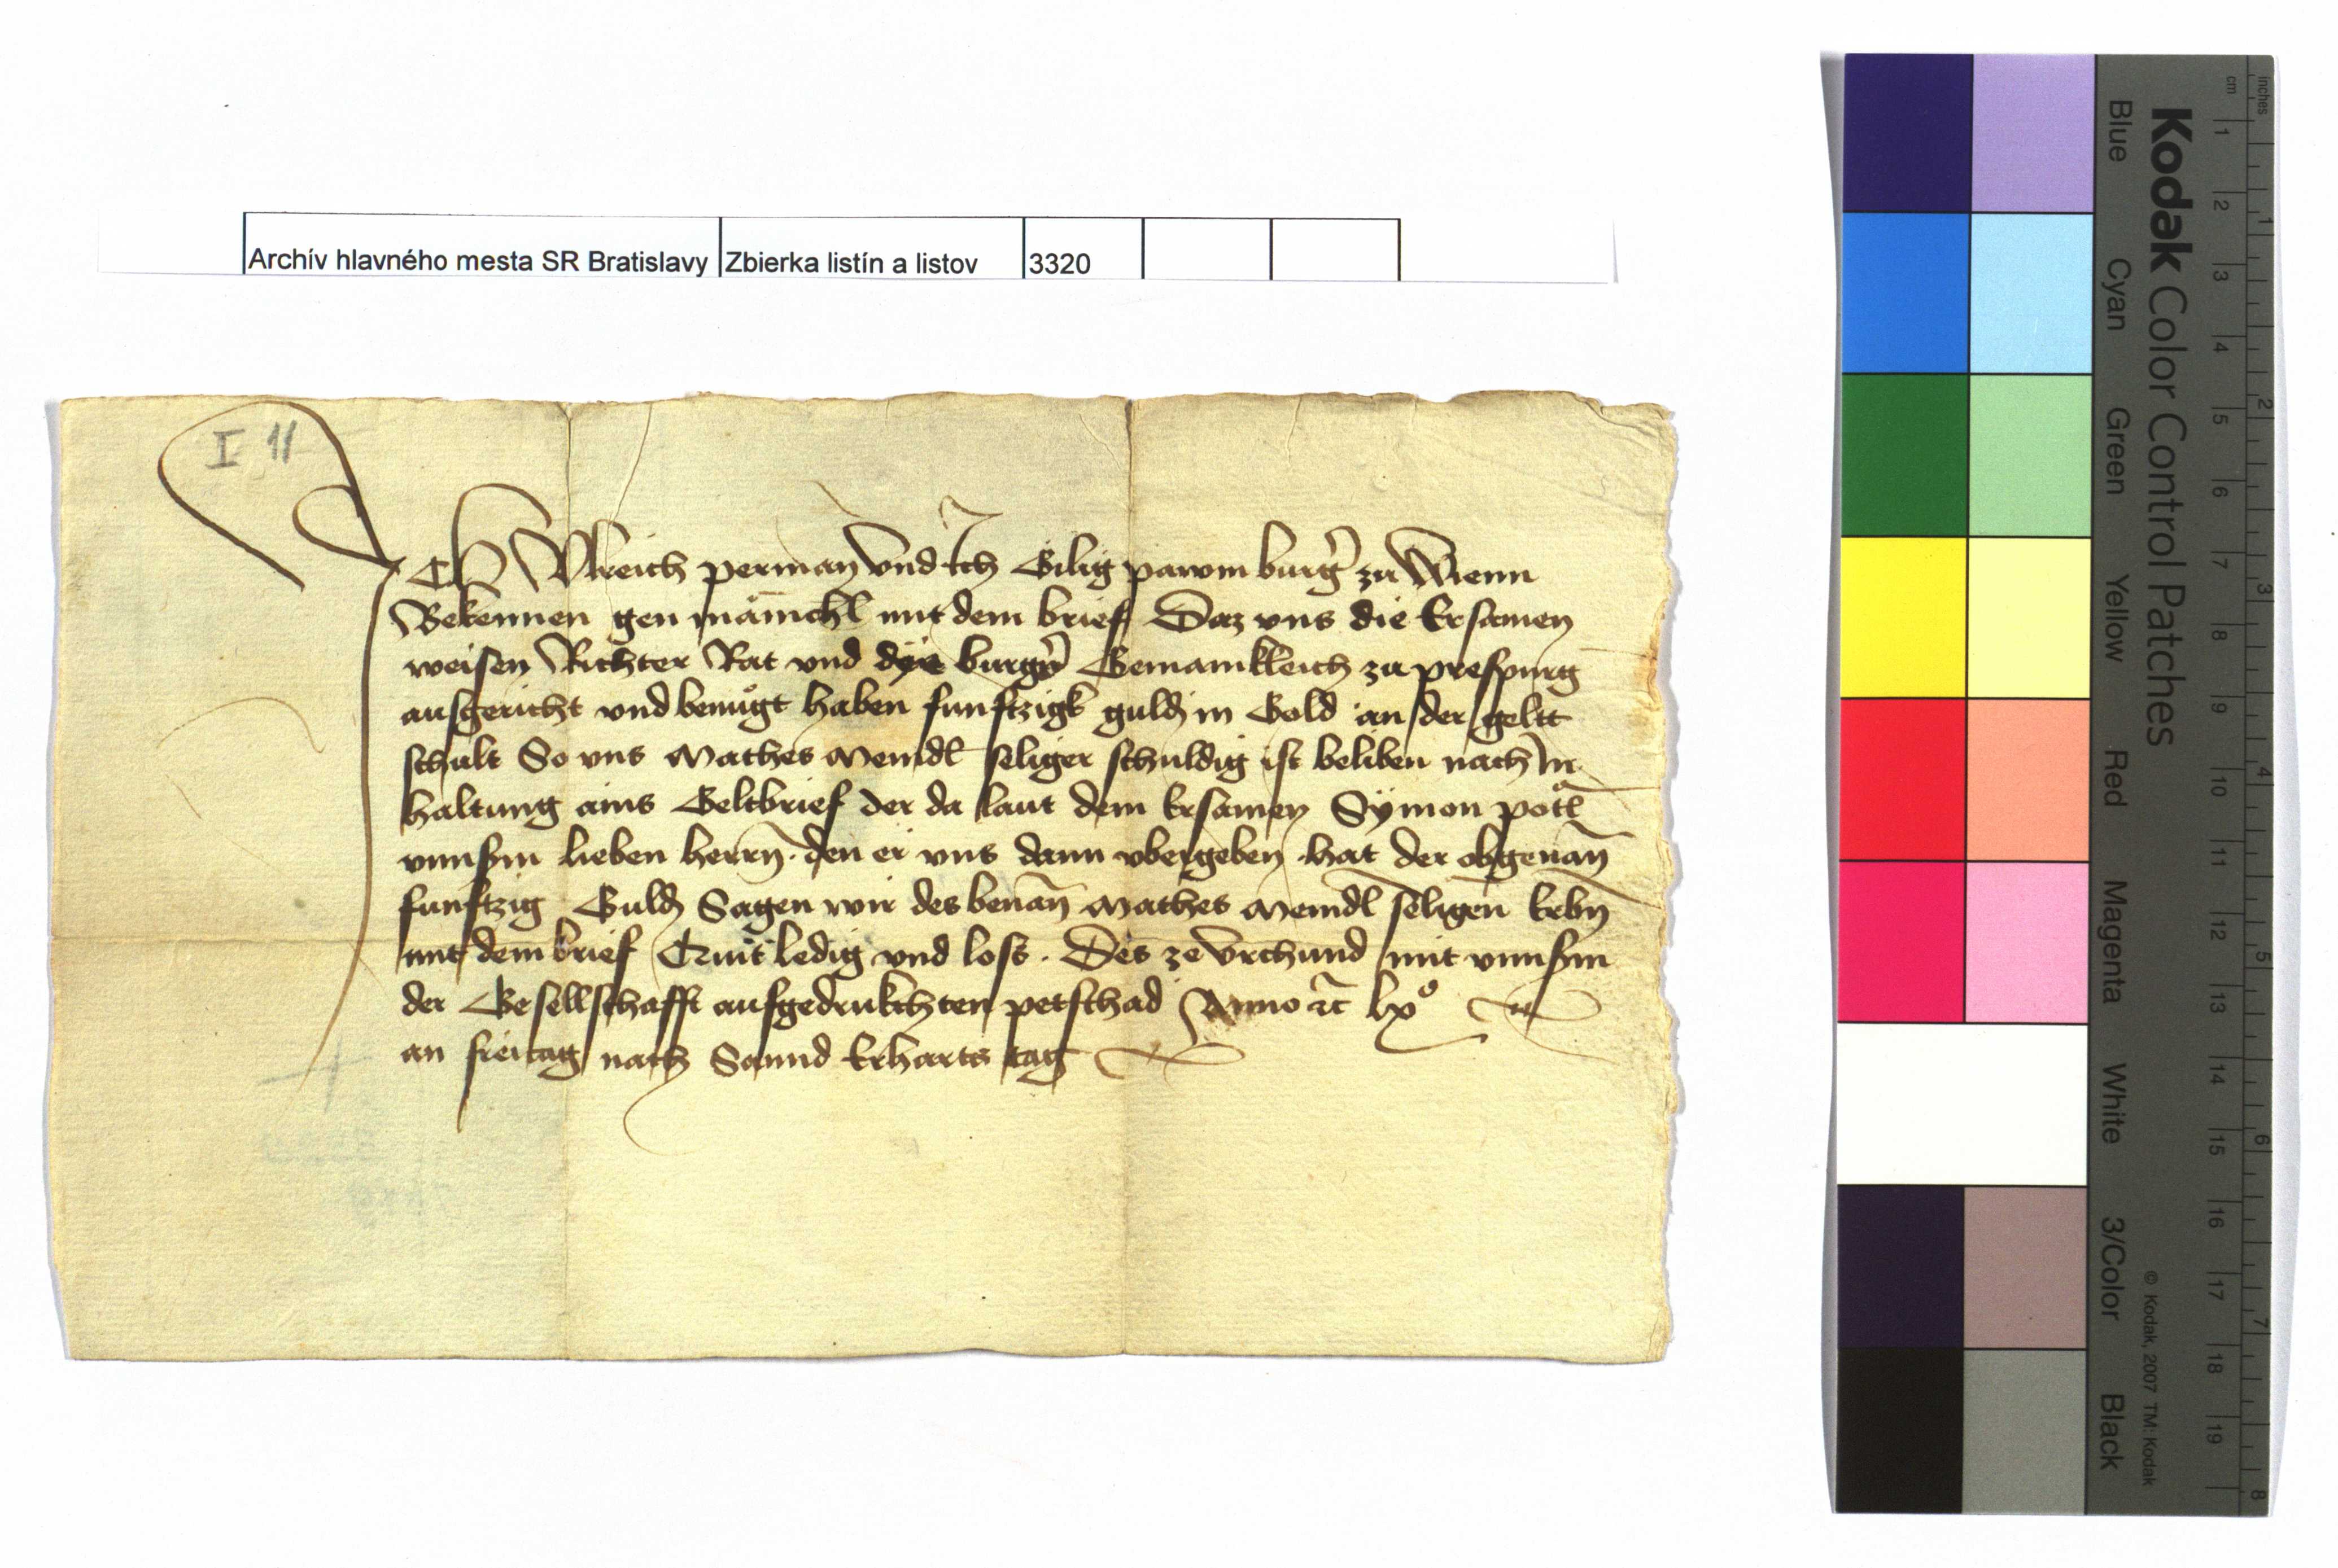 Archív hlavného mesta SR Bratislavy Zbierka listín a listov 3320
I 11
ICh Vlreich perman vnd Ich Gilig pawm burg̉ zu Wienn
Bekennen gen mänichl̄ mit dem brief Daz vns die Ersamen
weisen Richter Rat vnd die burg̉ Gemainkleich zu prespurg
ausgericht vnd benugt haben funftzigk guld in Gold an der gelt
schult So vns Mathes Meindl seliger schuldig ist beliben nach In
haltung ains Geltbrief der da laut dem Ersamen Symon potl̄
vnnserm lieben herrn̄ den er vns dann vbergeben hat der obgenan̄
funftzig Guld Sagen wir des benan̄ Mathes Meindl seligen̄ Erbn̄
mit dem brief Quit ledig vnd loss . Des ze Vrchund mit vnnserm
der Gesellschafft aufgedrukchten petschad Anno ꝛc̄ lxº
an freitag nach Sannd Erharts tag
Kodak Color Control Patches
Blue Cyan Green Yellow Red Magenta White 3/Color Black
© Kodak, 2007 TM: Kodak
cm 1 2 3 4 5 6 7 8 9 10 11 12 13 14 15 16 17 18 19
inches 1 2 3 4 5 6 7 8